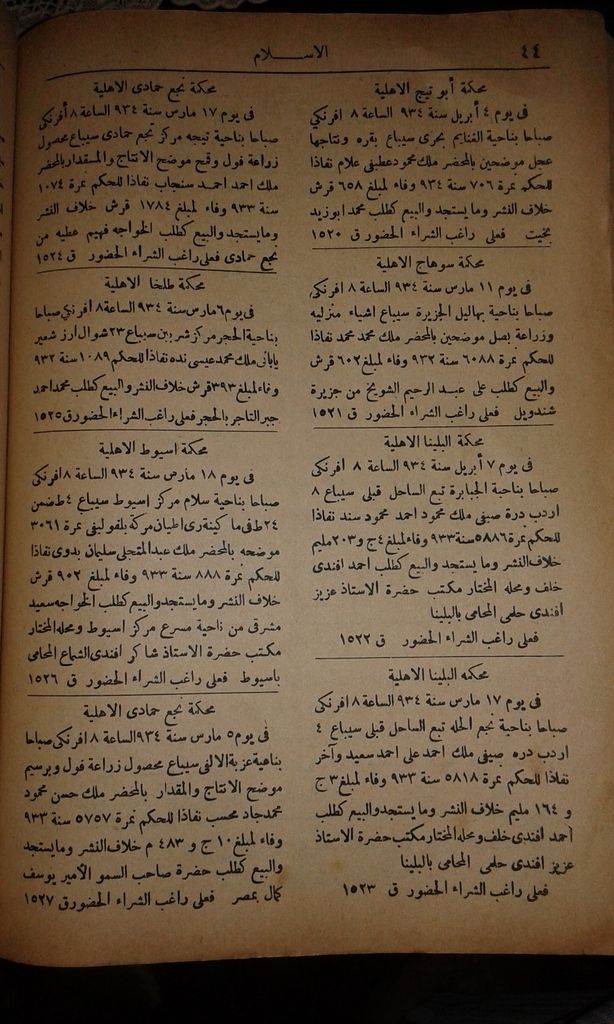 ٤٤
الاسلام
محكمة أبو تيج الاهلية
فى يوم ٤ أبريل سنة ٩٣٤ الساعة ٨ افرنكى
صباحا بناحية الغنايم بحرى سيباع بقره ونتاجها
عجل موضحين بالمحضر ملك محمود عطيفى علام نفاذا
للحكم نمرة ٧٠٦ سنة ٩٣٤ وفاء لمبلغ ٦٥٨ قرش
خلاف النشر وما يستجد والبيع كطلب محمد ابوزيد
بخيت فعلى راغب الشراء الحضور ق ١٥٢٠
محكمة سوهاج الاهلية
فى يوم ١١ مارس سنة ٩٣٤ الساعة ٨ افرنكى
صباحا بناحية بهاليل الجزيرة سيباع اشياء منزليه
وزراعة بصل موضحين بالمحضر ملك محمد محمد نفاذا
للحكم نمرة ٦٠٨٨ سنة ٩٣٢ وفاء لمبلغ ٦٠٢ قرش
والبيع كطلب على عبد الرحيم الشويخ من جزيرة
شندويل فعلى راغب الشراء الحضور ق ١٥٢١
محكمة البلينا الاهلية
فى يوم ٧ أبريل سنة ٩٣٤ الساعة ٨ افرنكى
صباحا بناحية الجبابرة تبع الساحل قبلى سيباع ٨
اردب درة صيفى ملك محمود احمد محمود سند نفاذا
للحكم نمرة ٥٨٨٦ سنة ٩٣٣ وفاء لمبلغ ٤ ج و ٢٠٣ مليم
خلاف النشر وما يستجد والبيع كطلب احمد افندى
خلف ومحله المختار مكتب حضرة الاستاذ عزيز
افندى حلمى المحامى بالبلينا
فعلى راغب الشراء الحضور ق ١٥٢٢
محكمه البلينا الاهلية
فى يوم ١٧ مارس سنة ٩٣٤ الساعة ٨ افرنكى
صباحا بناحية نجع الحله تبع الساحل قبلى سيباع ٤
اردب دره صيفى ملك احمد على احمد سعيد وآخر
نفاذا للحكم نمرة ٥٨١٨ سنة ٩٣٣ وفاء لمبلغ ٣ ج
و ١٦٤ مليم خلاف النشر وما يستجد والبيع كطلب
أحمد افندى خلف ومحله المختار مكتب حضرة الاستاذ
عزيز افندى حلمى المحامى بالبلينا
فعلى راغب الشراء الحضور ق ١٥٢٣
محكمة نجع حمادى الاهلية
فى يوم ١٧ مارس سنة ٩٣٤ الساعة ٨ أفرنكى
صباحا بناحية تيجه مركز نجع حمادى سيباع محصول
زراعة فول وقمح موضح الانتاج والمقدار بالمحضر
ملك احمد احمد سنجاب نفاذا للحكم نمرة ١٠٧٤
سنة ٩٣٣ وفاء لمبلغ ١٧٨٤ قرش خلاف النشر
وما يستجد والبيع كطلب الخواجه فهيم عطيه من
نجع حمادى فعلى راغب الشراء الحضور ق ١٥٢٤
محكمة طلخا الاهلية
فى يوم ٦ مارس سنة ٩٣٤ الساعة ٨ افرنكى صباحا
بناحية الحجر مركز شربين سيباع ٢٣ شوال ارز شعير
يابانى ملك محمد عيسى نده نفاذا للحكم ١٠٨٩ سنة ٩٣٢
وفاء لمبلغ ٣٩٣ قرش خلاف النشر والبيع كطلب محمد احمد
جبر التاجر بالحجر فعلى راغب الشراء الحضور ق ١٥٢٥
محكمة اسيوط الاهلية
فى يوم ١٨ مارس سنة ٩٣٤ الساعة ٨ افرنكى
صباحا بناحية سلام مركز اسيوط سيباع ٤ ط ضمن
٢٤ ط فى ماكينة رى اطيان مركة بلفولينى نمرة ٣٠٦١
موضحه بالمحضر ملك عبد المتجلى سليمان بدوى نفاذا
للحكم نمرة ٨٨٨ سنة ٩٣٣ وفاء لمبلغ ٩٠٢ قرش
خلاف النشر وما يستجد والبيع كطلب الخواجه سعيد
مشرقى من ناحية مسرع مركز اسيوط ومحله المختار
مكتب حضرة الاستاذ شاكر افندى الشماع المحامى
باسيوط فعلى راغب الشراء الحضور ق ١٥٢٦
محكمة نجع حمادى الاهلية
فى يوم ٥ مارس سنة ٩٣٤ الساعة ٨ افرنكى صباحا
بناحية عزبة الالفى سيباع محصول زراعة فول وبرسيم
موضح الانتاج والمقدار بالمحضر ملك حسن محمود
محمد جاد محسب نفاذا للحكم نمرة ٥٧٥٧ سنة ٩٣٣
وفاء لمبلغ ١٠ ج و ٤٨٣ م خلاف النشر وما يستجد
والبيع كطلب حضرة صاحب السمو الأمير يوسف
كمال بمصر فعلى راغب الشراء الحضور ق ١٥٢٧